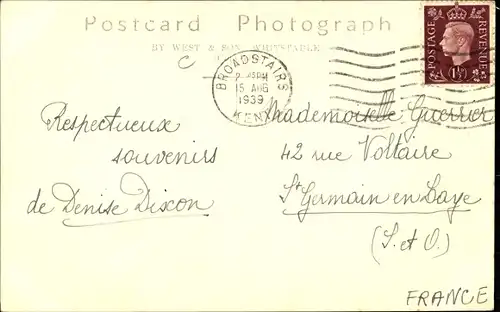 Postcard Photograph
BY WEST & SON, WHITSTABLE
BROADSTAIRS
15 AUG
1939
KENT
POSTAGE
REVENUE
1½
Respectueux
souvenirs
de Denise Dixon
Mademoiselle Guerrier
42 rue Voltaire
St Germain en Laye
(S. et O.)
FRANCE